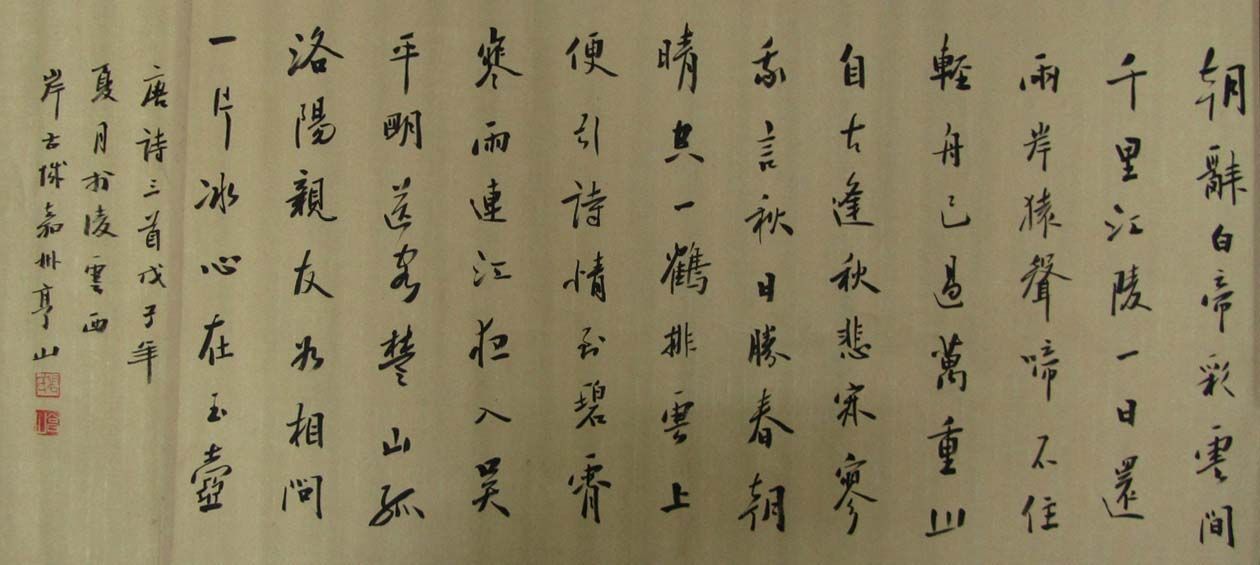 朝辭白帝彩雲間
千里江陵一日還
兩岸猿聲啼不住
輕舟已過萬重山
自古逢秋悲寂寥
我言秋日勝春朝
晴空一鶴排雲上
便引詩情到碧霄
寒雨連江夜入吳
平明送客楚山孤
洛陽親友如相問
一片冰心在玉壺
唐詩三首戊子年
夏月於凌雲西
岸古城嘉州亨山